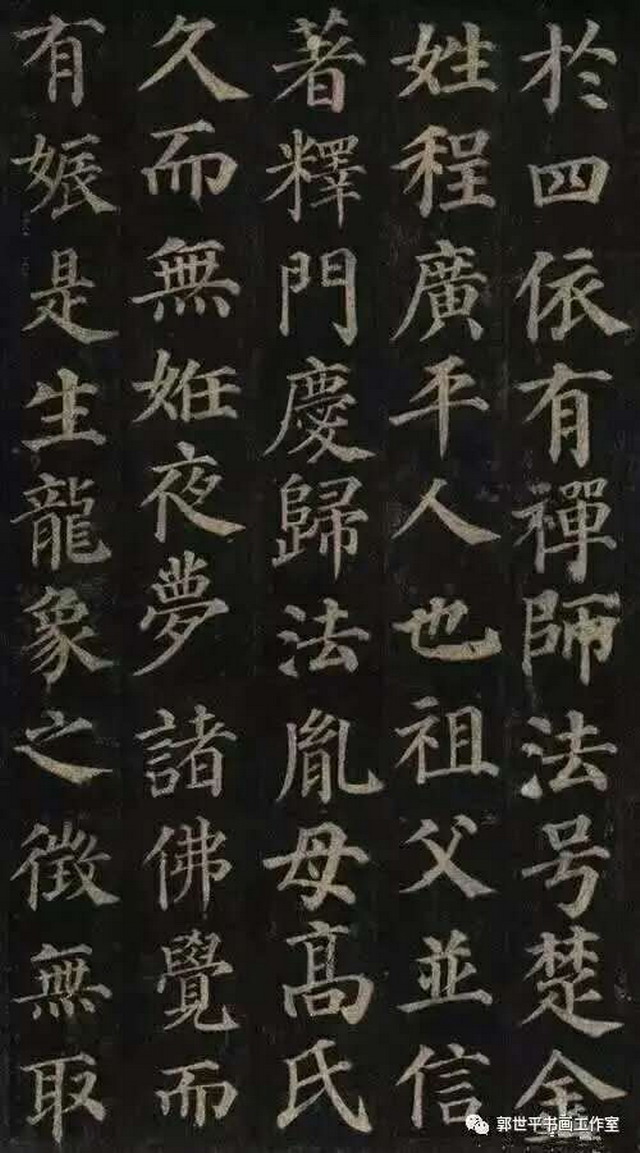 於四依有禪師法号楚金
姓程廣平人也祖父並信
著釋門慶歸法胤母高氏
久而無姙夜夢諸佛覺而
有娠是生龍象之徵無取
郭世平书画工作室